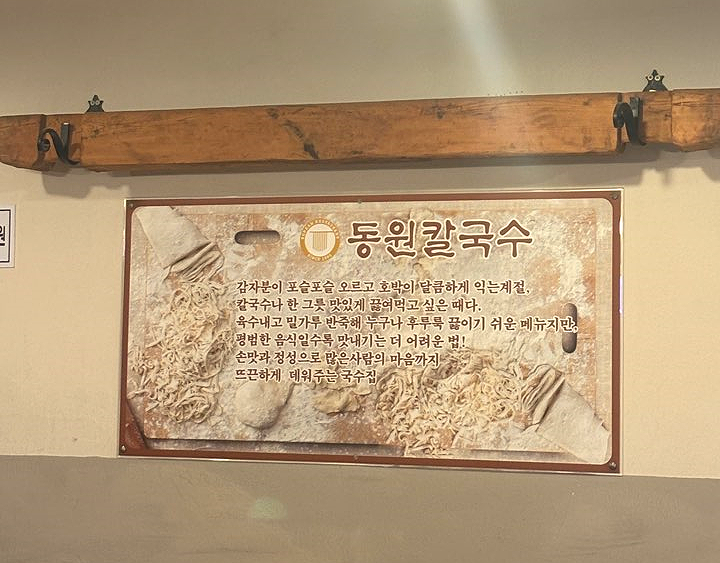 동원칼국수
감자분이 포슬포슬 오르고 호박이 달큼하게 익는계절,
칼국수나 한 그릇 맛있게 끓여먹고 싶은 때다.
육수내고 밀가루 반죽해 누구나 후루룩 끓이기 쉬운 메뉴지만,
평범한 음식일수록 맛내기는 더 어려운 법!
손맛과 정성으로 많은사람의 마음까지
뜨끈하게 데워주는 국수집
원